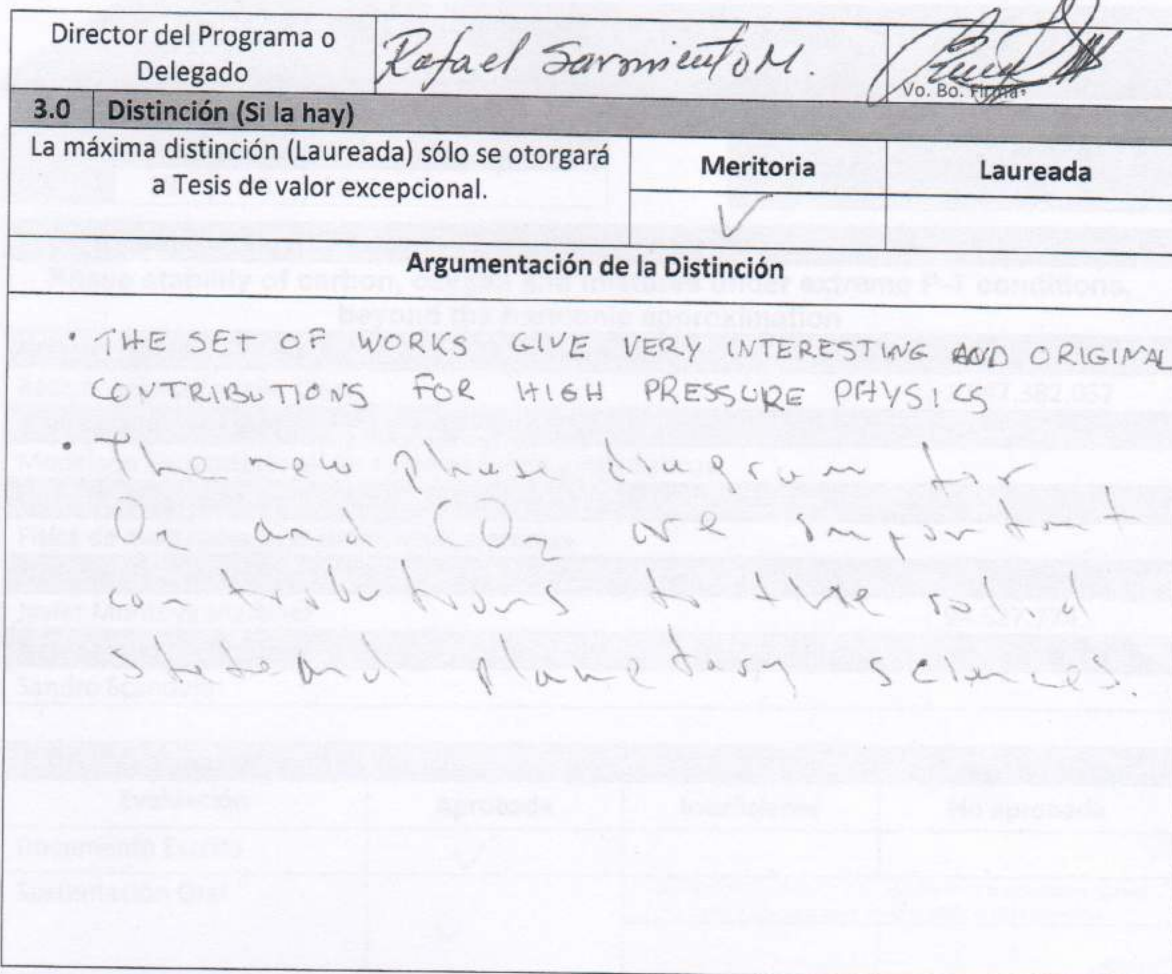 Director del Programa o
Delegado
Rafael Sarmiento M.
Vo. Bo. Firma
3.0 Distinción (Si la hay)
La máxima distinción (Laureada) sólo se otorgará
a Tesis de valor excepcional.
Meritoria
Laureada
Argumentación de la Distinción
• THE SET OF WORKS GIVE VERY INTERESTING AND ORIGINAL
CONTRIBUTIONS FOR HIGH PRESSURE PHYSICS
• The new phase diagram for
O2 and CO2 are important
contributions to the solid
state and planetary sciences.